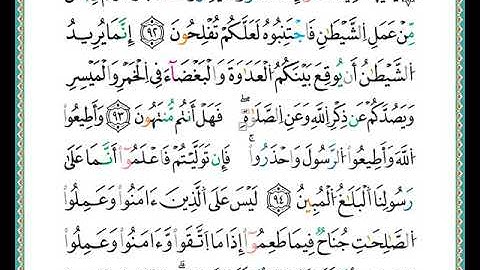 مِّنْ عَمَلِ ٱلشَّيْطَٰنِ فَٱجْتَنِبُوهُ لَعَلَّكُمْ تُفْلِحُونَ ٩٢ إِنَّمَا يُرِيدُ
ٱلشَّيْطَٰنُ أَن يُوقِعَ بَيْنَكُمُ ٱلْعَدَٰوَةَ وَٱلْبَغْضَآءَ فِي ٱلْخَمْرِ وَٱلْمَيْسِرِ
وَيَصُدَّكُمْ عَن ذِكْرِ ٱللَّهِ وَعَنِ ٱلصَّلَوٰةِ ۖ فَهَلْ أَنتُم مُّنتَهُونَ ٩٣ وَأَطِيعُوا۟
ٱللَّهَ وَأَطِيعُوا۟ ٱلرَّسُولَ وَٱحْذَرُوا۟ ۚ فَإِن تَوَلَّيْتُمْ فَٱعْلَمُوٓا۟ أَنَّمَا عَلَىٰ
رَسُولِنَا ٱلْبَلَٰغُ ٱلْمُبِينُ ٩٤ لَيْسَ عَلَى ٱلَّذِينَ ءَامَنُوا۟ وَعَمِلُوا۟
ٱلصَّٰلِحَٰتِ جُنَاحٌ فِيمَا طَعِمُوٓا۟ إِذَا مَا ٱتَّقَوا۟ وَّءَامَنُوا۟ وَعَمِلُوا۟